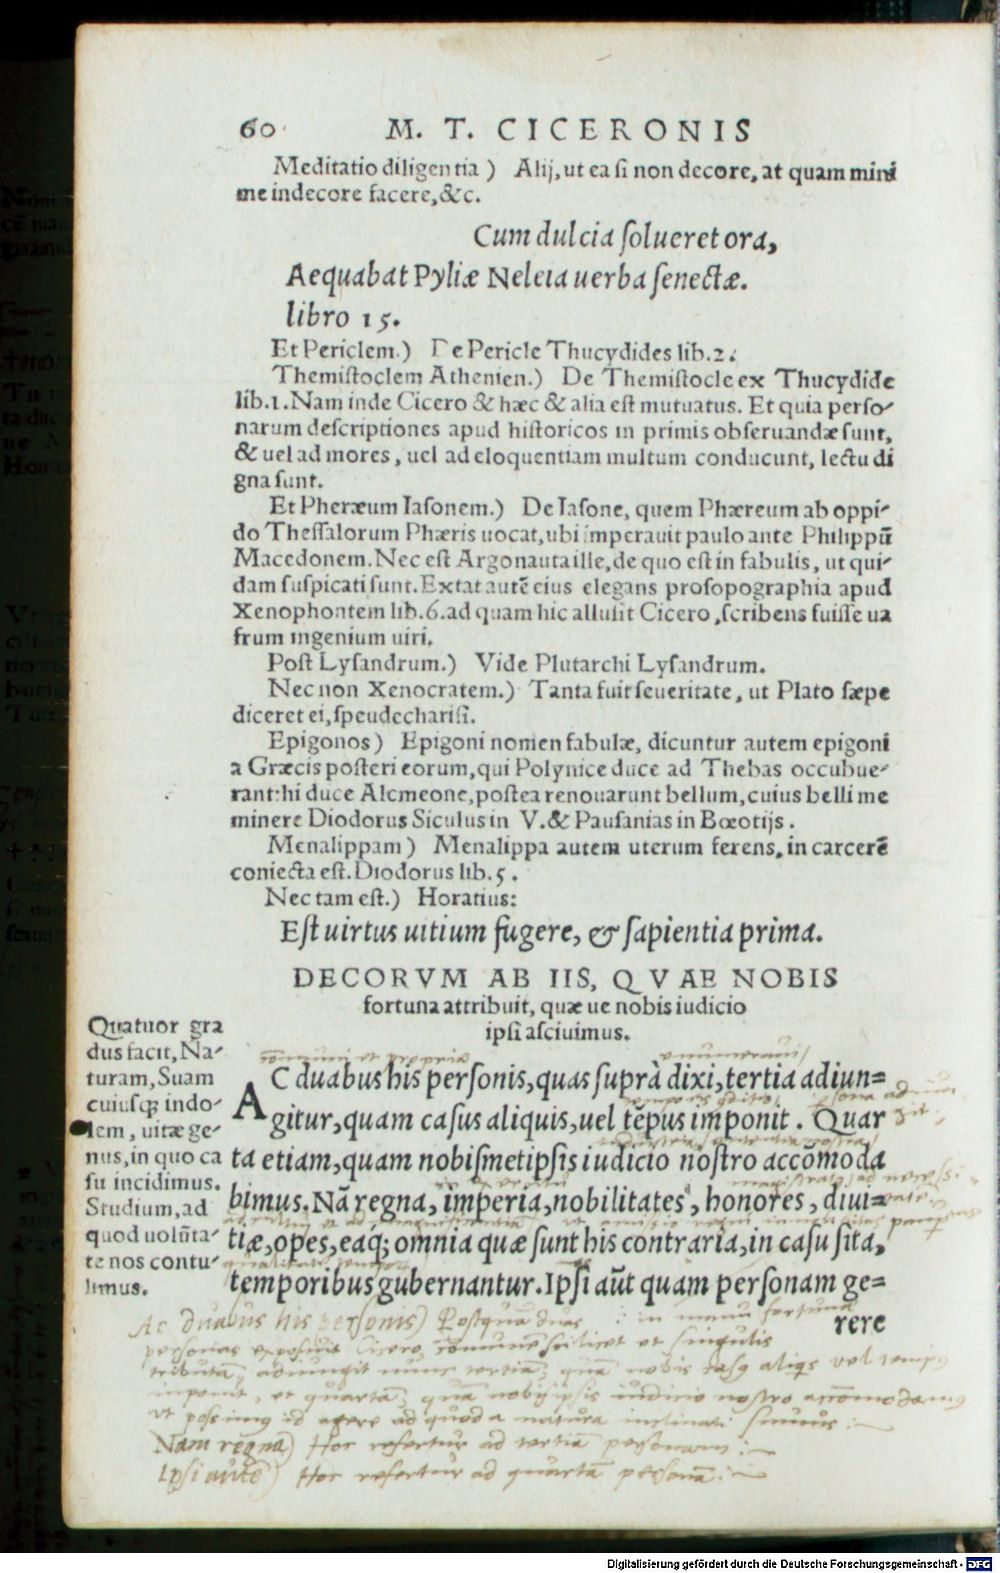 60 M. T. CICERONIS
Meditatio diligentia) Alij, ut ea si non decore, at quam mini
me indecore facere, &c.
Cum dulcia solueret ora,
Aequabat Pyliæ Neleia uerba senectæ.
libro 15.
Et Periclem.) De Pericle Thucydides lib.2.
Themistoclem Athenien.) De Themistocle ex Thucydide
lib.1. Nam inde Cicero & hæc & alia est mutuatus. Et quia perso-
narum descriptiones apud historicos in primis obseruandæ sunt,
& uel ad mores, uel ad eloquentiam multum conducunt, lectu di
gna sunt.
Et Pheræum Iasonem.) De Iasone, quem Phæreum ab oppi-
do Thessalorum Phæris uocat, ubi imperauit paulo ante Philippũ
Macedonem. Nec est Argonauta ille, de quo est in fabulis, ut qui-
dam suspicati sunt. Extat autẽ eius elegans prosopographia apud
Xenophontem lib.6. ad quam hic allusit Cicero, scribens fuisse ua
frum ingenium uiri.
Post Lysandrum.) Vide Plutarchi Lysandrum.
Nec non Xenocratem.) Tanta fuit seueritate, ut Plato sæpe
diceret ei, speudecharisi.
Epigonos) Epigoni nomen fabulæ, dicuntur autem epigoni
a Græcis posteri eorum, qui Polynice duce ad Thebas occubue-
rant: hi duce Alcmeone, postea renouarunt bellum, cuius belli me
minere Diodorus Siculus in V. & Pausanias in Bœotijs.
Menalippam) Menalippa autem uterum ferens, in carcerẽ
coniecta est. Diodorus lib.5.
Nec tam est.) Horatius:
Est uirtus uitium fugere, & sapientia prima.
DECORVM AB IIS, QVAE NOBIS
fortuna attribuit, quæ ue nobis iudicio
ipsi asciuimus.
Quatuor gra
dus facit, Na-
turam, Suam
cuiusq; indo-
lem, uitæ ge-
nus, in quo ca
su incidimus.
Studium, ad
quod uolũta-
te nos contu-
limus.
cõmuni et propria
AC duabus his personis, quas suprà dixi, tertia adiun=
gitur, quam casus aliquis, uel tẽpus imponit. Quar
ta etiam, quam nobismetipsis iudicio nostro accõmoda
bimus. Nã regna, imperia, nobilitates, honores, diui=
tiæ, opes, eaq; omnia quæ sunt his contraria, in casu sita,
temporibus gubernantur. Ipsi aũt quam personam ge=
rere
Ac duabus his personis) Postquã duas in manu fortunæ
personas exposuit Cicero, cõmunẽ scilicet et singulis
tributã, adiungit nunc tertiã, quã nobis casq aliqs vel tempq
imponit, et quartã, quã nobijpsis iudicio nostro accõmodamq
vt possimq id agere ad quod a natura inclinati sumus:
Nam regna) Hoc refertur ad tertiã personam:
Ipsi autẽ) Hoc refertur ad quartã personã:
Digitalisierung gefördert durch die Deutsche Forschungsgemeinschaft - DFG